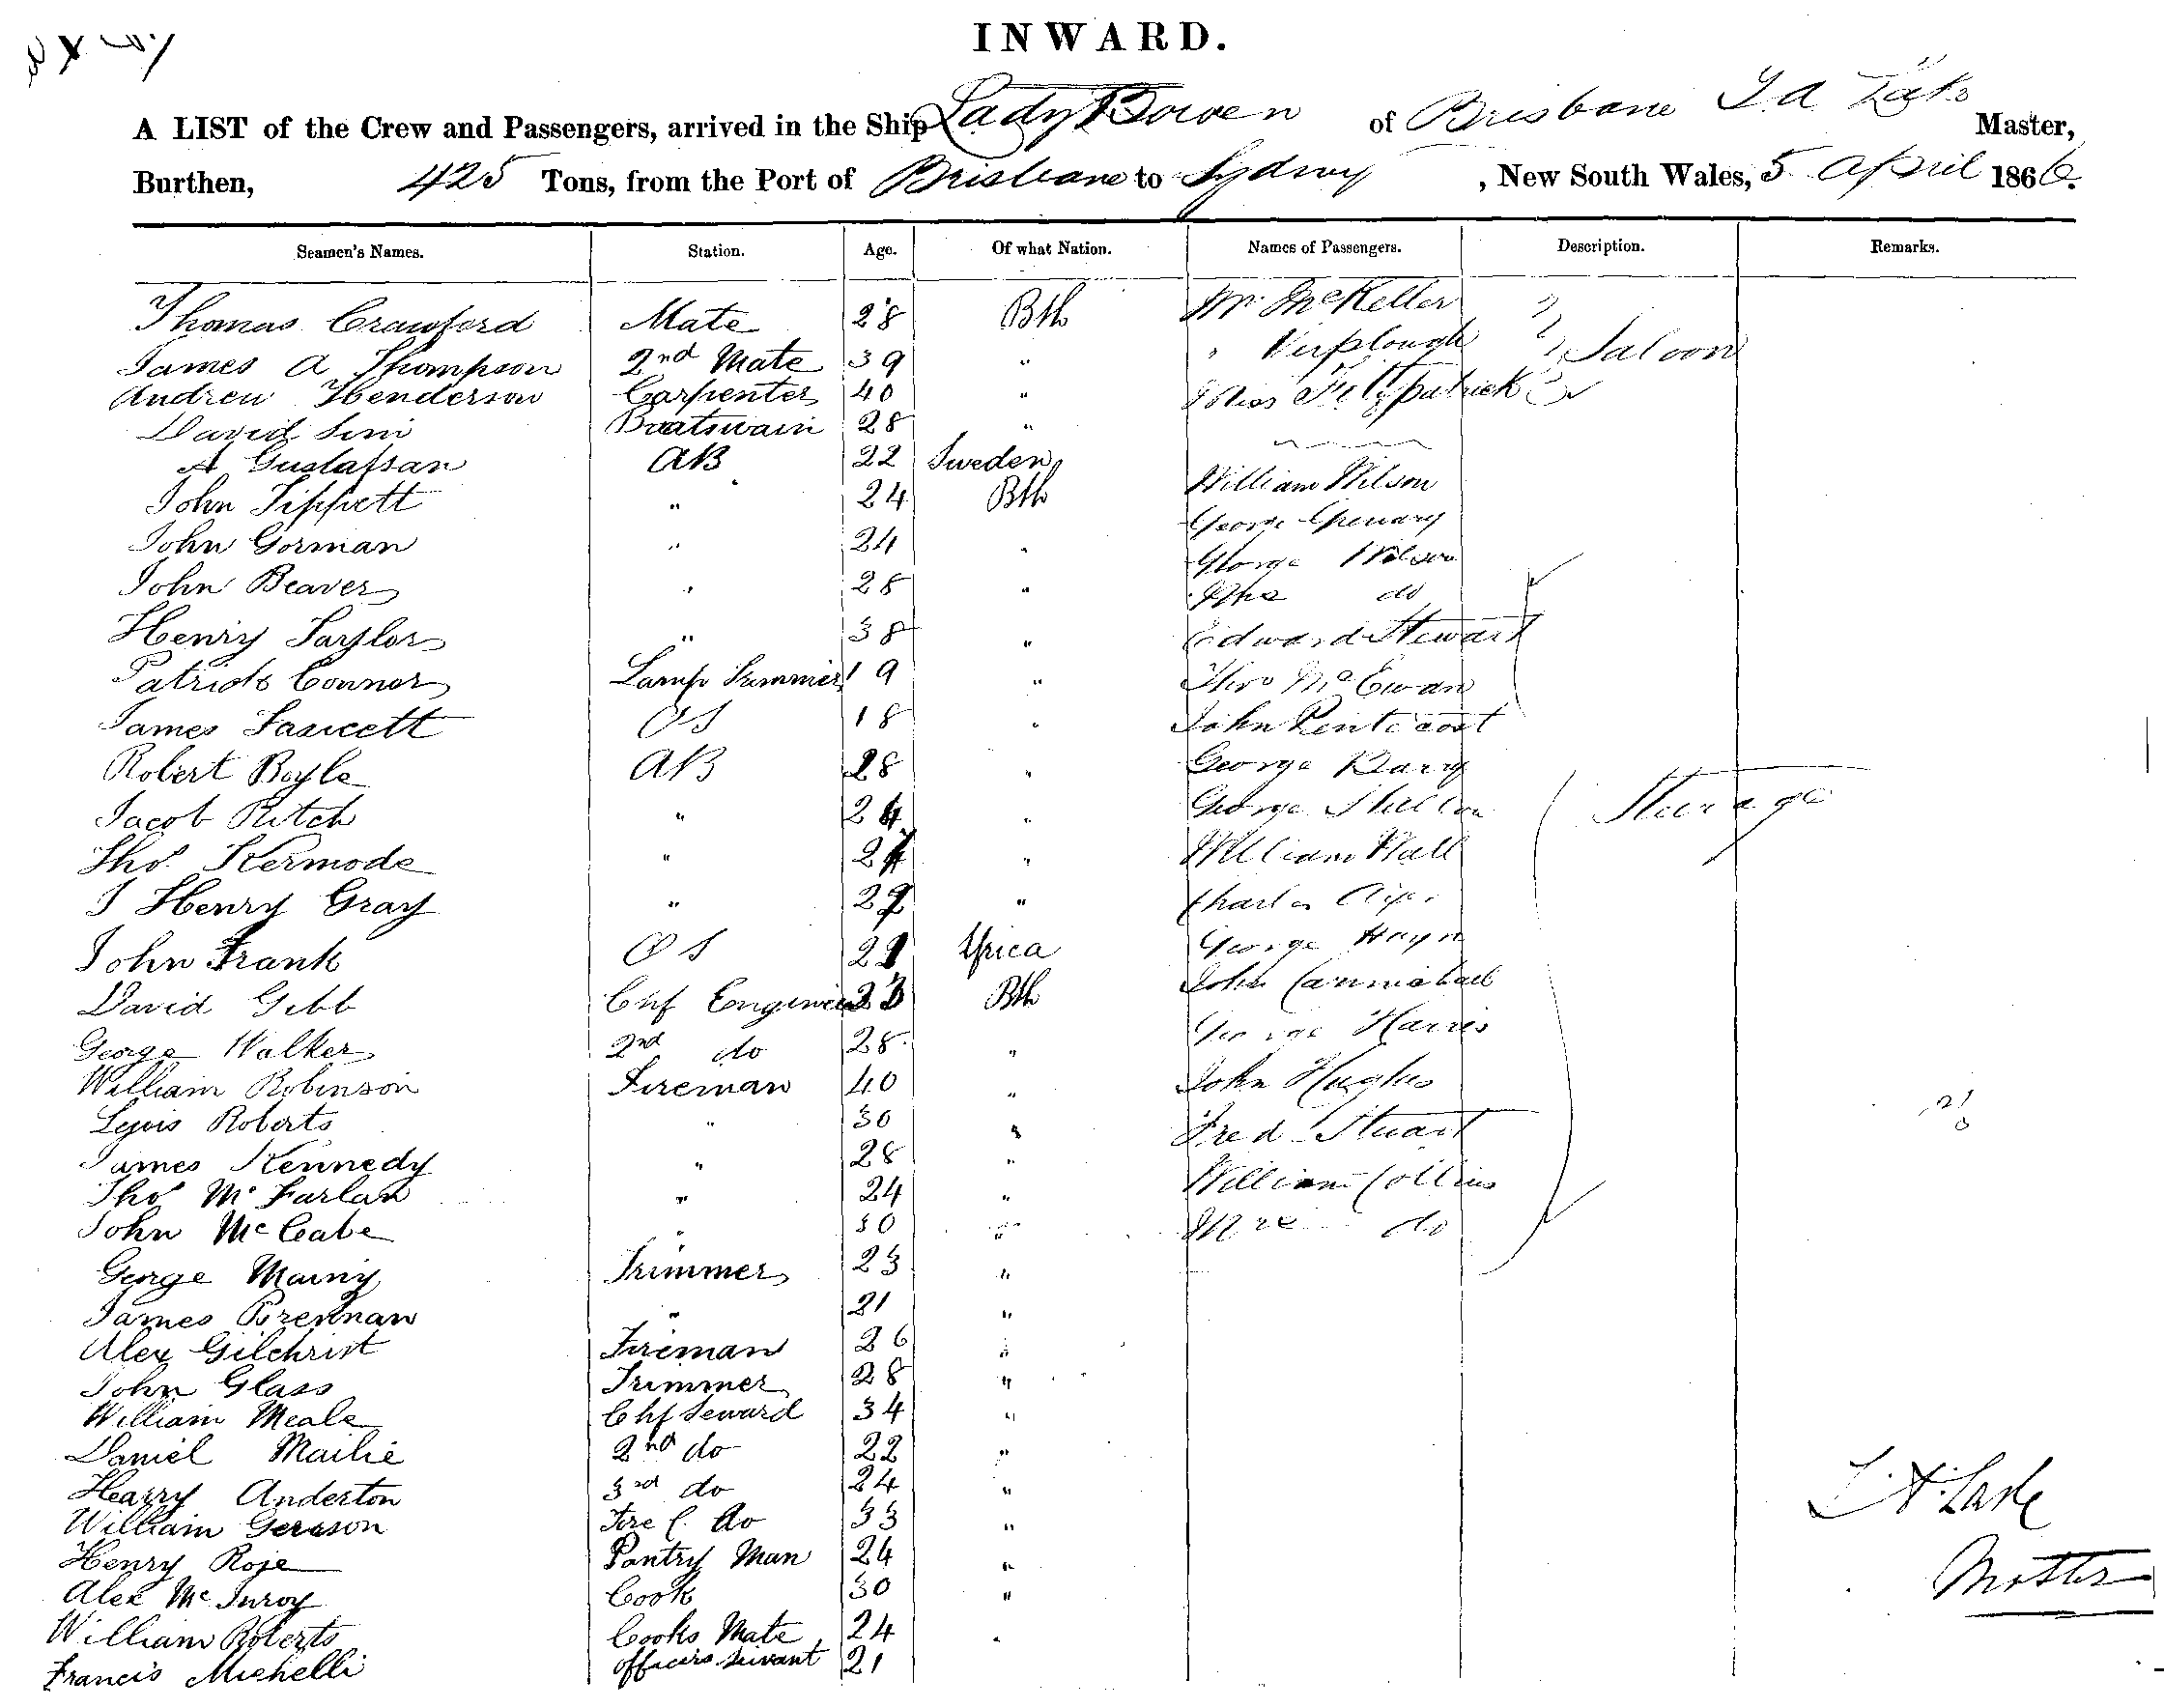 INWARD.
A LIST of the Crew and Passengers, arrived in the Ship Lady Bowen of Brisbane Master,
Burthen, 425 Tons, from the Port of Brisbane to Sydney, New South Wales, 5 April 1866.
Seamen's Names. Station. Age. Of what Nation. Names of Passengers. Description. Remarks.
Thomas Crawford Mate 28 Bth Mr McKellar
James A Thompson 2nd Mate 39 " " Saloon
Andrew Henderson Carpenter 40 " Miss Fitzpatrick
David Sim Boatswain 28 "
A Gustafsan AB 22 Sweden
John Tippett " 24 Bth William Wilson
John Gorman " 24 " George
John Beaver " 28 " George Wilson
Mrs do
Henry Taylor " 38 " Edward Stewart
Patrick Connor Lamp Trimmer 19 " Thos McEwan
James Fawcett OS 18 " John Pentecost
Robert Boyle AB 28 " George Barry
Jacob Ritch " 24 " George Skelton Steerage
Thos Kermode " 24 " William Hall
J Henry Gray " 27 " Charles
John Frank OS 21 Africa George
David Gibb Chf Engineer 23 Bth John Carmichael
George Walker 2nd do 28 " George Harris
William Robinson Fireman 40 " John Hughes
Lewis Roberts " 30 " Fred Stuart
James Kennedy " 28 " William Collins
Thos McFarlan " 24 "
John McCabe " 30 " Mrs do
George Mainy Trimmer 23 "
James Brennan " 21 "
Alex Gilchrist Fireman 26 "
John Glass Trimmer 28 "
William Meale Chf Steward 34 "
Daniel Mailie 2nd do 22 "
Hearry Anderton 3rd do 24 "
William Gerason Fore C. do 33 "
Henry Roje Pantry Man 24 "
Alex McInroy Cook 30 "
William Roberts Cooks Mate 24 "
Francis Michelli officers servant 21
Master